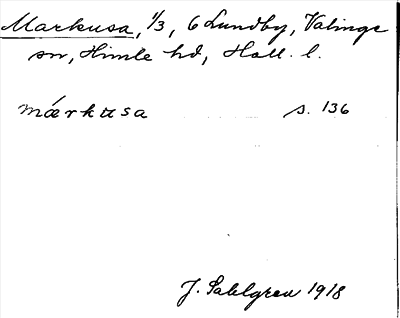 Markusa, 1/3, 6 Lundby, Valinge
sn, Himle hd, Hall. l.
mǽrkusa s. 136
J. Sahlgren 1918